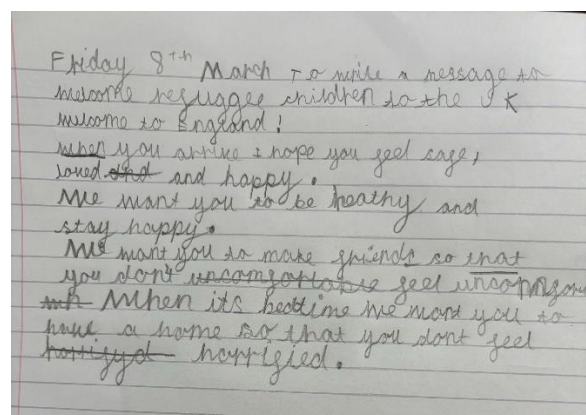 Friday 8th March To write a message to
welcome refuggee children to the UK
welcome to England!
when you arrive I hope you feel safe,
loved and and happy.
We want you to be heathy and
stay happy.
We want you to make friends so that
you don't uncomfortable feel uncomfor
When its bedtime we want you to
have a home so that you dont feel
horrified.